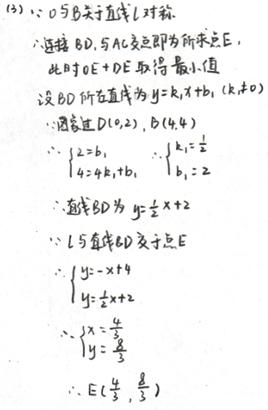 (3) ∵ O与B关于直线l对称
∴连接BD,与AC交点即为所求点E,
此时OE+DE取得最小值
设BD所在直线为y=k₁x+b₁ (k₁≠0)
∵图象过D(0,2), B(4,4)
∴ {2=b₁ ∴ {k₁=1/2
4=4k₁+b₁ b₁=2
∴直线BD为 y=1/2x+2
∵ l与直线BD交于点E
∴ {y=-x+4
y=1/2x+2
∴ {x=4/3
y=8/3
∴ E(4/3, 8/3)